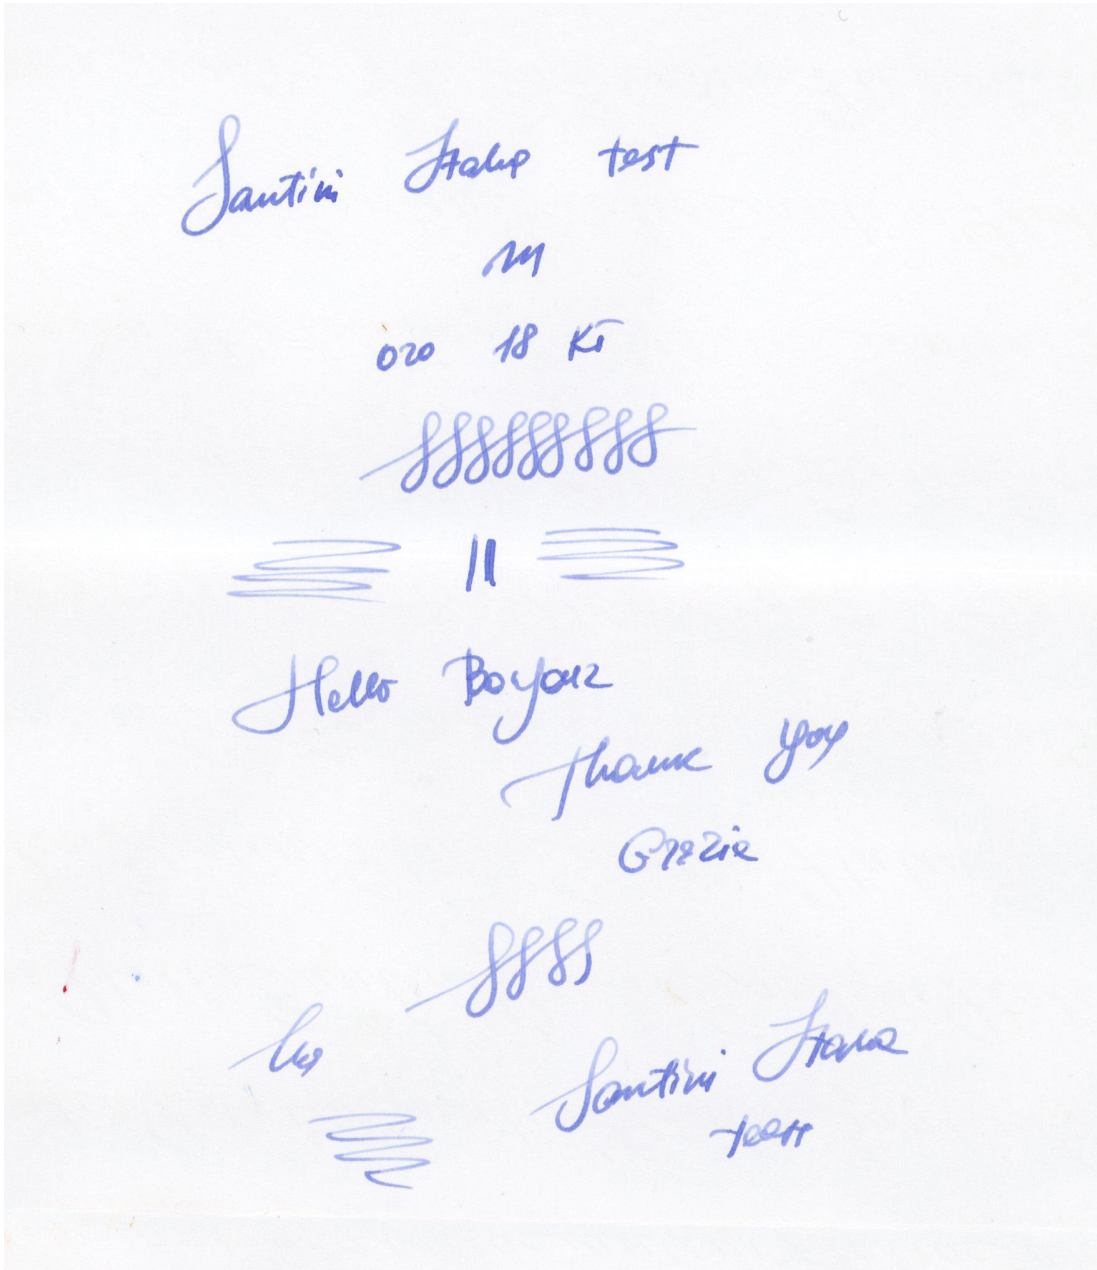 Santini Italia test
M
oro 18 Kt
Hello
Thank you
Grazie
Santini Italia
test